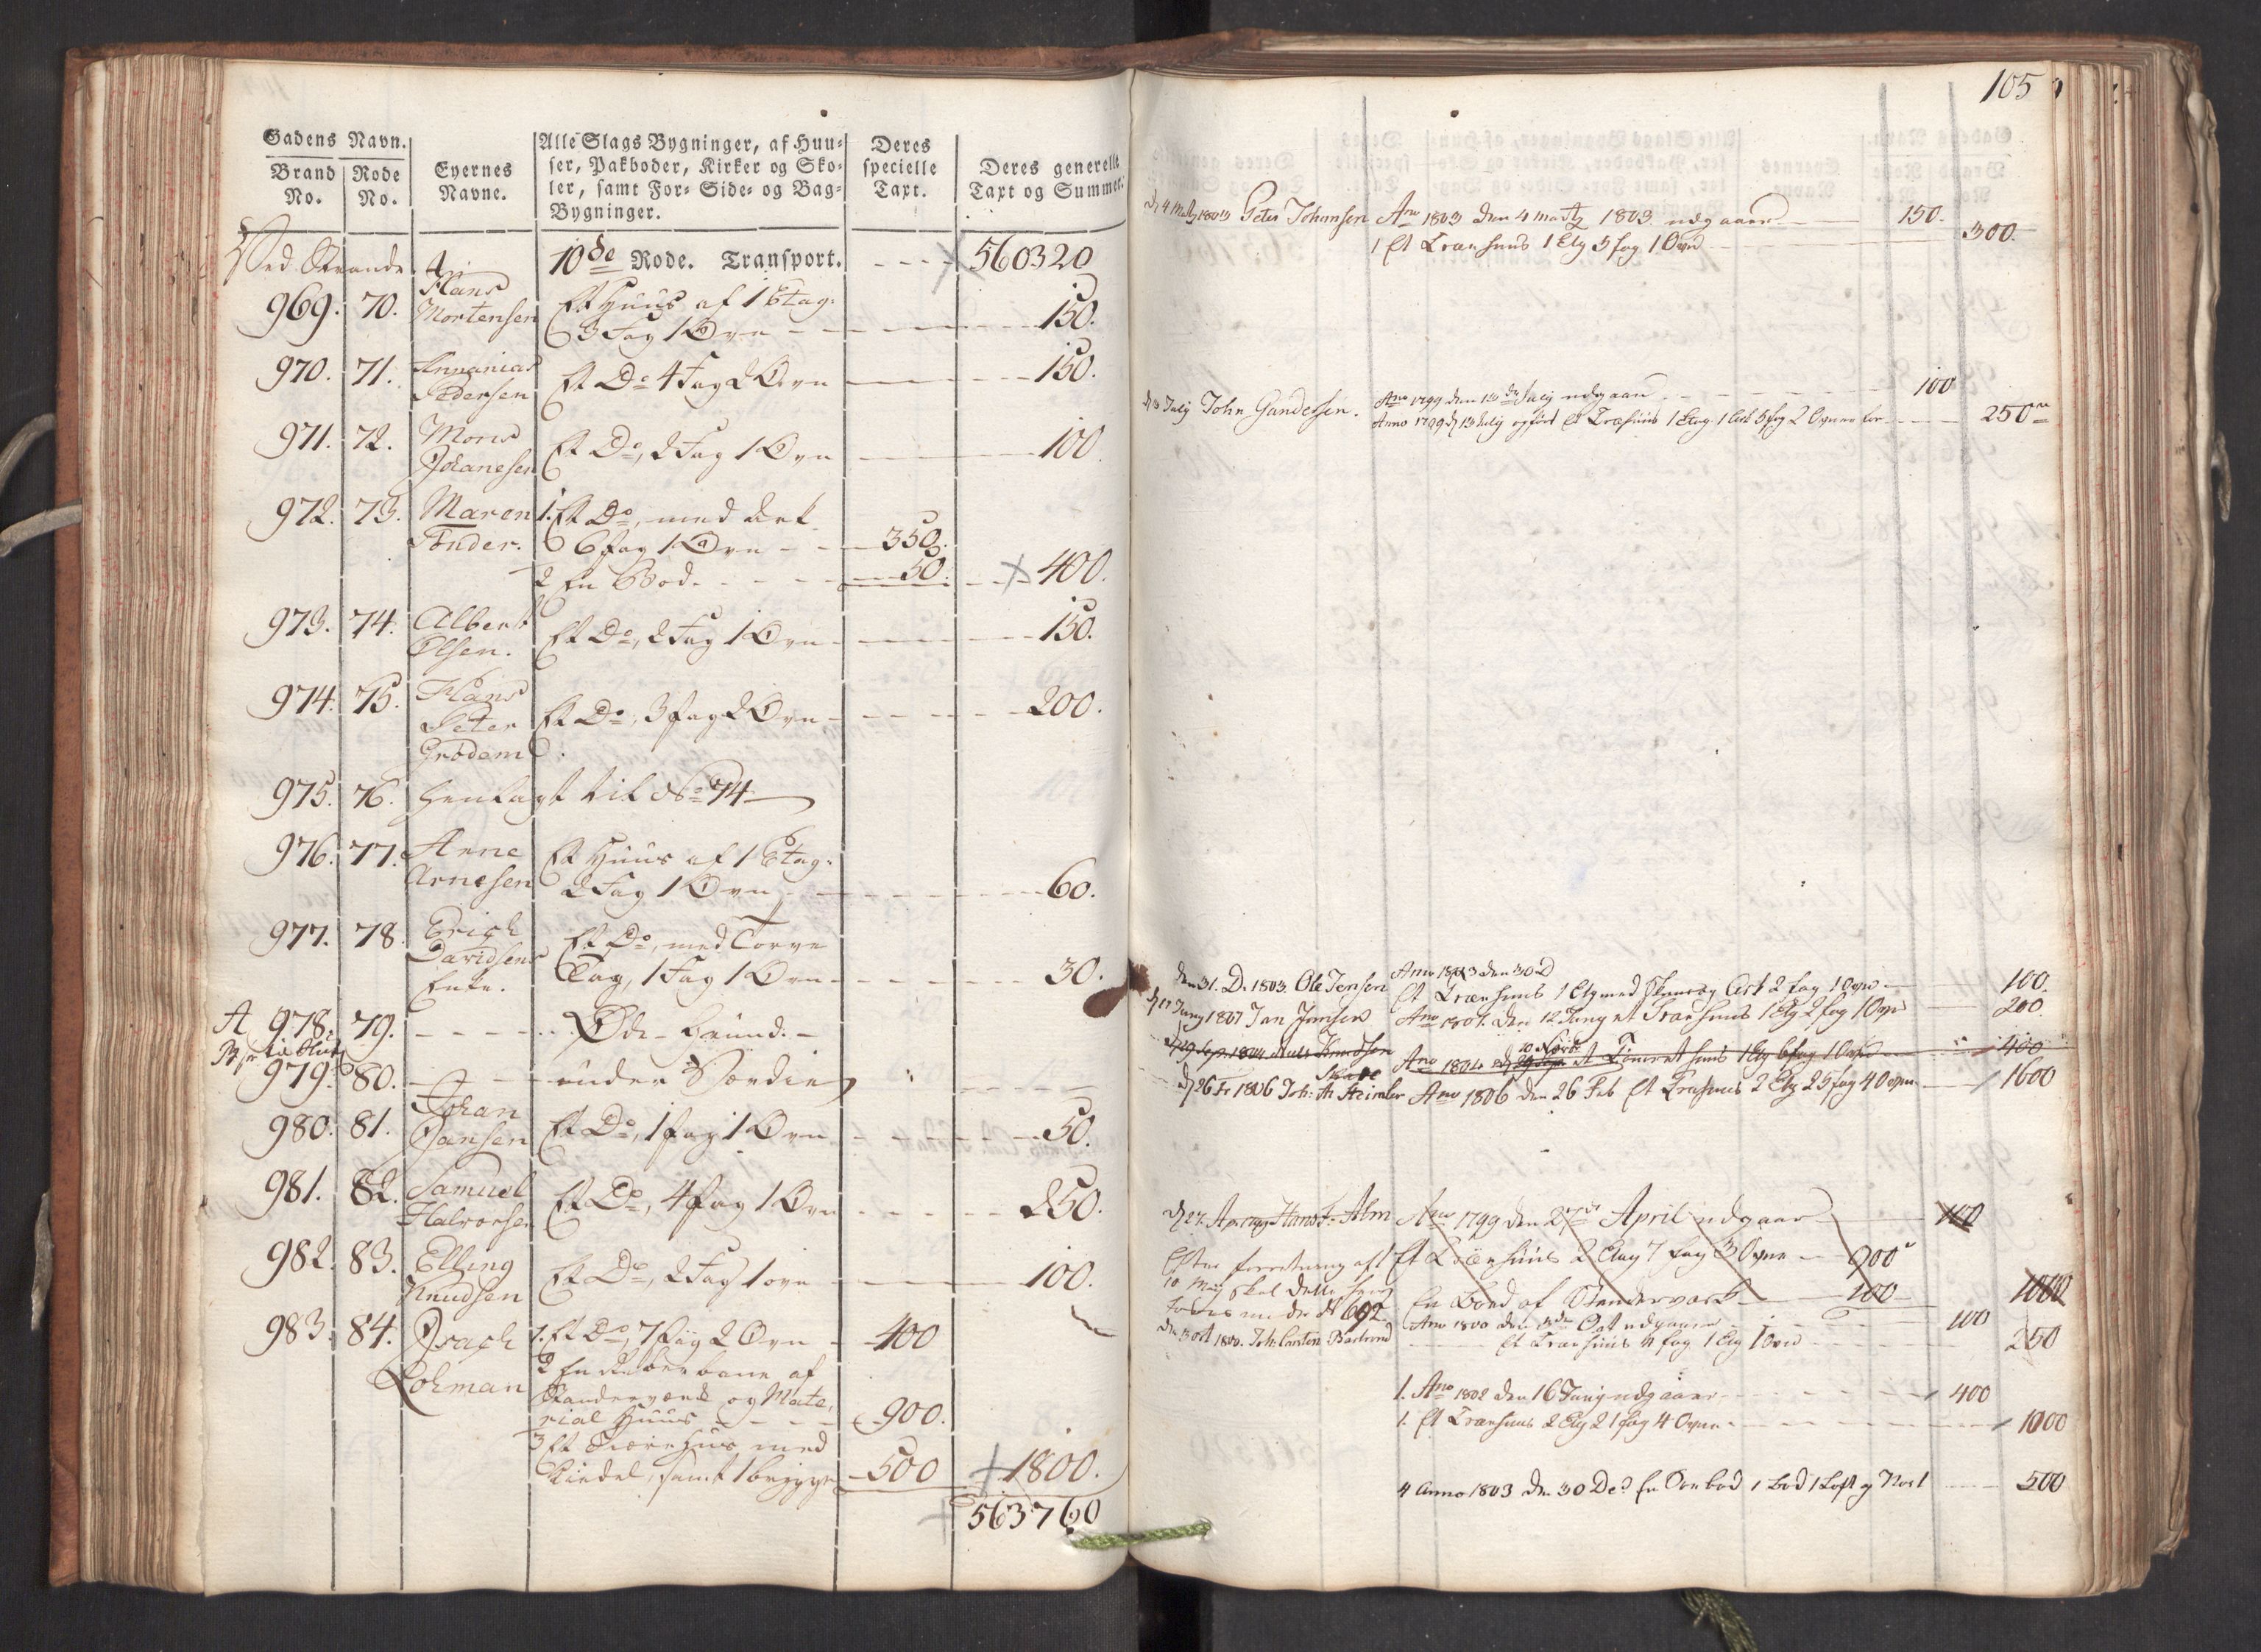 Gadens Navn.
Brand No.
Rode No.
Eyernes Navne.
Alle Slags Bygninger, af Huu-
ser, Pakboder, Kirker og Sko-
ler, samt For- Side- og Bag-
Bygninger.
Deres specielle Taxt.
Deres generelle Taxt og Summer.
Ved Strande 10de Rode. Transport. 560320
969. 70. Hans Mortensen Et Huus af 1 Etag.
3 Fag 1 Ovn 150.
970. 71. Annanias Pedersen Et Do 4 Fag 2 Ovn 150.
971. 72. Mons Johanesen Et Do, 2 Fag 1 Ovn 100.
972. 73. Maren Tønder. 1. Et Do, med
6 fag 1 Ovn 350.
2 En Bod 50. 400.
973. 74. Albert Olsen. Et Do, 2 Fag 1 Ovn 150.
974. 75. Hans Peter Grødem Et Do, 3 fag 2 Ovn 200.
975. 76. henlagt til No 74
976. 77. Arne Arnesen Et Huus af 1 Etag.
2 Fag 1 Ovn 60.
977. 78. Erich Davidsens Enke. Et Do, med Torve
Tag, 1 Fag 1 Ovn 30.
A 978. 79. Øde Grund.
979. 80. under
980. 81. Johan Jansen Et Do, 1 fag 1 Ovn 50.
981. 82. Samuel Halvorsen Et Do, 4 fag 1 Ovn 250.
982. 83. Elling Knudsen Et Do, 2 Fag 1 ovn 100.
983. 84. Isach Lohman 1. Et Do, 7 Fag 2 Ovn 400
2 En Reberbane af
Standerværk og Mate-
rial Huus 900.
3 Et Tiære Hus med
Kiedel, samt 1 brygge 500 1800.
563760
105
d. 4 Martz 1803 Peter Johansen Ano 1803 den 4 Martz 1803 udgaaer 150.
1 Et Træehuus 1 Etg 5 fag 1 Ovn 300.
July John Gandersen. Ano 1799 den 13de July udgaaer 100
Anno 1799 d 13 July opført Et Træhuus 1 Etag 1 Qvist 5 fag 2 Ovner for 250
den 31. D. 1803. Ole Jensen Ano 1803 den 30 D
Et Træehuus 1 Etg med 2 fag 1 Ovn 100.
d 12 Juny 1807 Jan Jansen Ano 1807. den 12 Juny et Træehuus 1 Etg 2 fag 1 Ovn 200.
d 29 Sep. 1804 Niels Knudsen Ano 1804 10 Novbr et Tømret huus 1 Etg 6 fag 1 Ovn 400
d 26 Fe 1806 Joh: Ano 1806 den 26 Feb Et Træhuus 2 Etg 25 fag 4 Ovner 1600
d 27. Apr 1799 Hans F. Alm Ano 1799 den 27de April udgaar 100
Efter forretning af 1 Et Træehuus 2 Etag 7 fag 3 Ovner 900
10 May skal dette
No 692 En Boed af Standerværk 100 1000
Ano 1800 den 3de Oct udgaaer 100
den 3 Oct 1800. Joh: Carsten Et Træehuus 4 fag 1 Etg 1 Ovn 250
1. Ano 1802 den 16 Juny udgaaer 400
1. Et Træehuus 2 Etg 21 fag 4 Ovner 1000
4 Anno 1803 den 30 Dec En Søebod 1 Bod 1 Loft 500